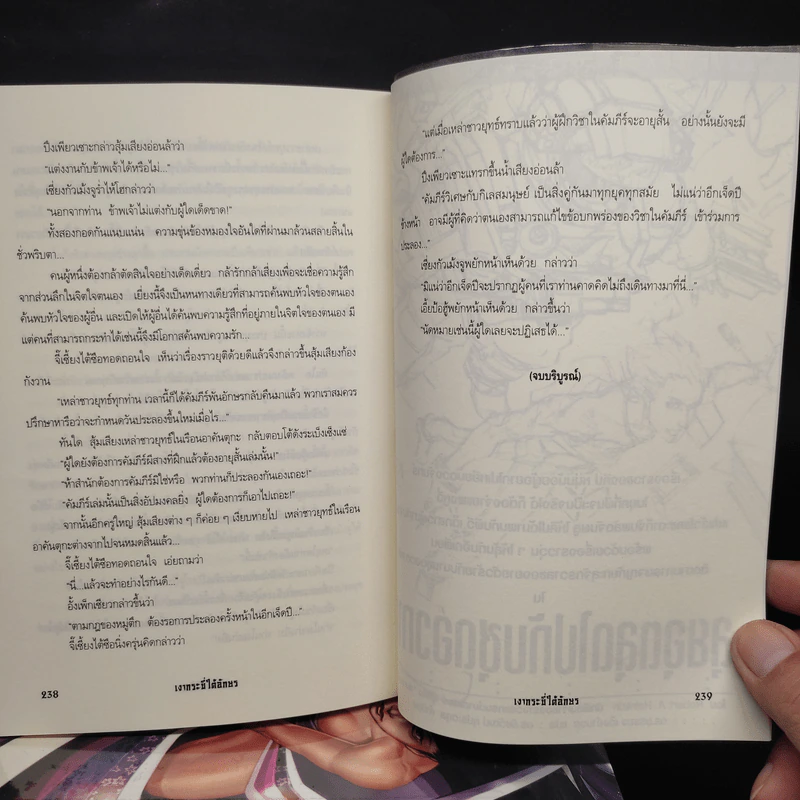 ปึงเพียวเซาะกล่าวสุ้มเสียงอ่อนล้าว่า
"แต่งงานกับข้าพเจ้าได้หรือไม่..."
เซี่ยงกัวเม้งจูร่ำไห้โฮกล่าวว่า
"นอกจากท่าน ข้าพเจ้าไม่แต่งกับผู้ใดเด็ดขาด!"
ทั้งสองกอดกันแนบแน่น ความขุ่นข้องหมองใจอันใดที่ผ่านมาล้วนสลายสิ้นใน
ชั่วพริบตา...
คนผู้หนึ่งต้องกล้าตัดสินใจอย่างเด็ดเดี่ยว กล้ารักกล้าเสี่ยงเพื่อจะเชื่อความรู้สึก
จากส่วนลึกในจิตใจตนเอง เยี่ยงนี้จึงเป็นหนทางเดียวที่สามารถค้นพบหัวใจของตนเอง
ค้นพบหัวใจของผู้อื่น และเปิดให้ผู้อื่นได้ค้นพบความรู้สึกที่อยู่ภายในจิตใจของตนเอง มี
แต่คนที่สามารถกระทำได้เช่นนี้จึงมีโอกาสค้นพบความรัก...
จี๊เซี้ยงไต้ซือทอดถอนใจ เห็นว่าเรื่องราวยุติด้วยดีแล้วจึงกล่าวขึ้นสุ้มเสียงก้อง
กังวาน
"เหล่าชาวยุทธ์ทุกท่าน เวลานี้ก็ได้คัมภีร์พันอักษรกลับคืนมาแล้ว พวกเราสมควร
ปรึกษาหารือว่าจะกำหนดวันประลองขึ้นใหม่เมื่อไร..."
ทันใด สุ้มเสียงเหล่าชาวยุทธ์ในเรือนอาคันตุกะ กลับตอบโต้ดังระเบ็งเซ็งแซ่
"ผู้ใดยังต้องการคัมภีร์ผีสางที่ฝึกแล้วต้องอายุสั้นเล่มนั้น!"
"ห้าสำนักต้องการคัมภีร์มิใช่หรือ พวกท่านก็ประลองกันเองเถอะ!"
"คัมภีร์เล่มนั้นเป็นสิ่งอัปมงคลยิ่ง ผู้ใดต้องการก็เอาไปเถอะ!"
จากนั้นอีกครู่ใหญ่ สุ้มเสียงต่าง ๆ ก็ค่อย ๆ เงียบหายไป เหล่าชาวยุทธ์ในเรือน
อาคันตุกะต่างจากไปจนหมดสิ้นแล้ว...
จี๊เซี้ยงไต้ซือทอดถอนใจ เอ่ยถามว่า
"นี่...แล้วจะทำอย่างไรกันดี..."
อั้งเพ็กเซียวกล่าวขึ้นว่า
"ตามกฎของหมู่ตึก ต้องรอการประลองครั้งหน้าในอีกเจ็ดปี..."
จี๊เซี้ยงไต้ซือนิ่งครุ่นคิดกล่าวว่า
238
เงากระบี่ใต้อักษร
"แต่เมื่อเหล่าชาวยุทธ์ทราบแล้วว่าผู้ฝึกวิชาในคัมภีร์จะอายุสั้น อย่างนั้นยังจะมี
ผู้ใดต้องการ..."
ปึงเพียวเซาะแทรกขึ้นน้ำเสียงอ่อนล้า
"คัมภีร์วิเศษกับกิเลสมนุษย์ เป็นสิ่งคู่กันมาทุกยุคทุกสมัย ไม่แน่ว่าอีกเจ็ดปี
ข้างหน้า อาจมีผู้ที่คิดว่าตนเองสามารถแก้ไขข้อบกพร่องของวิชาในคัมภีร์ เข้าร่วมการ
ประลอง..."
เซี่ยงกัวเม้งจูพยักหน้าเห็นด้วย กล่าวว่า
"มิแน่ว่าอีกเจ็ดปีจะปรากฏผู้คนที่เราท่านคาดคิดไม่ถึงเดินทางมาที่นี่..."
เอี้ยป้ออู้พยักหน้าเห็นด้วย กล่าวขึ้นว่า
"นัดหมายเช่นนี้ผู้ใดเลยจะปฏิเสธได้..."
(จบบริบูรณ์)
เงากระบี่ใต้อักษร
239